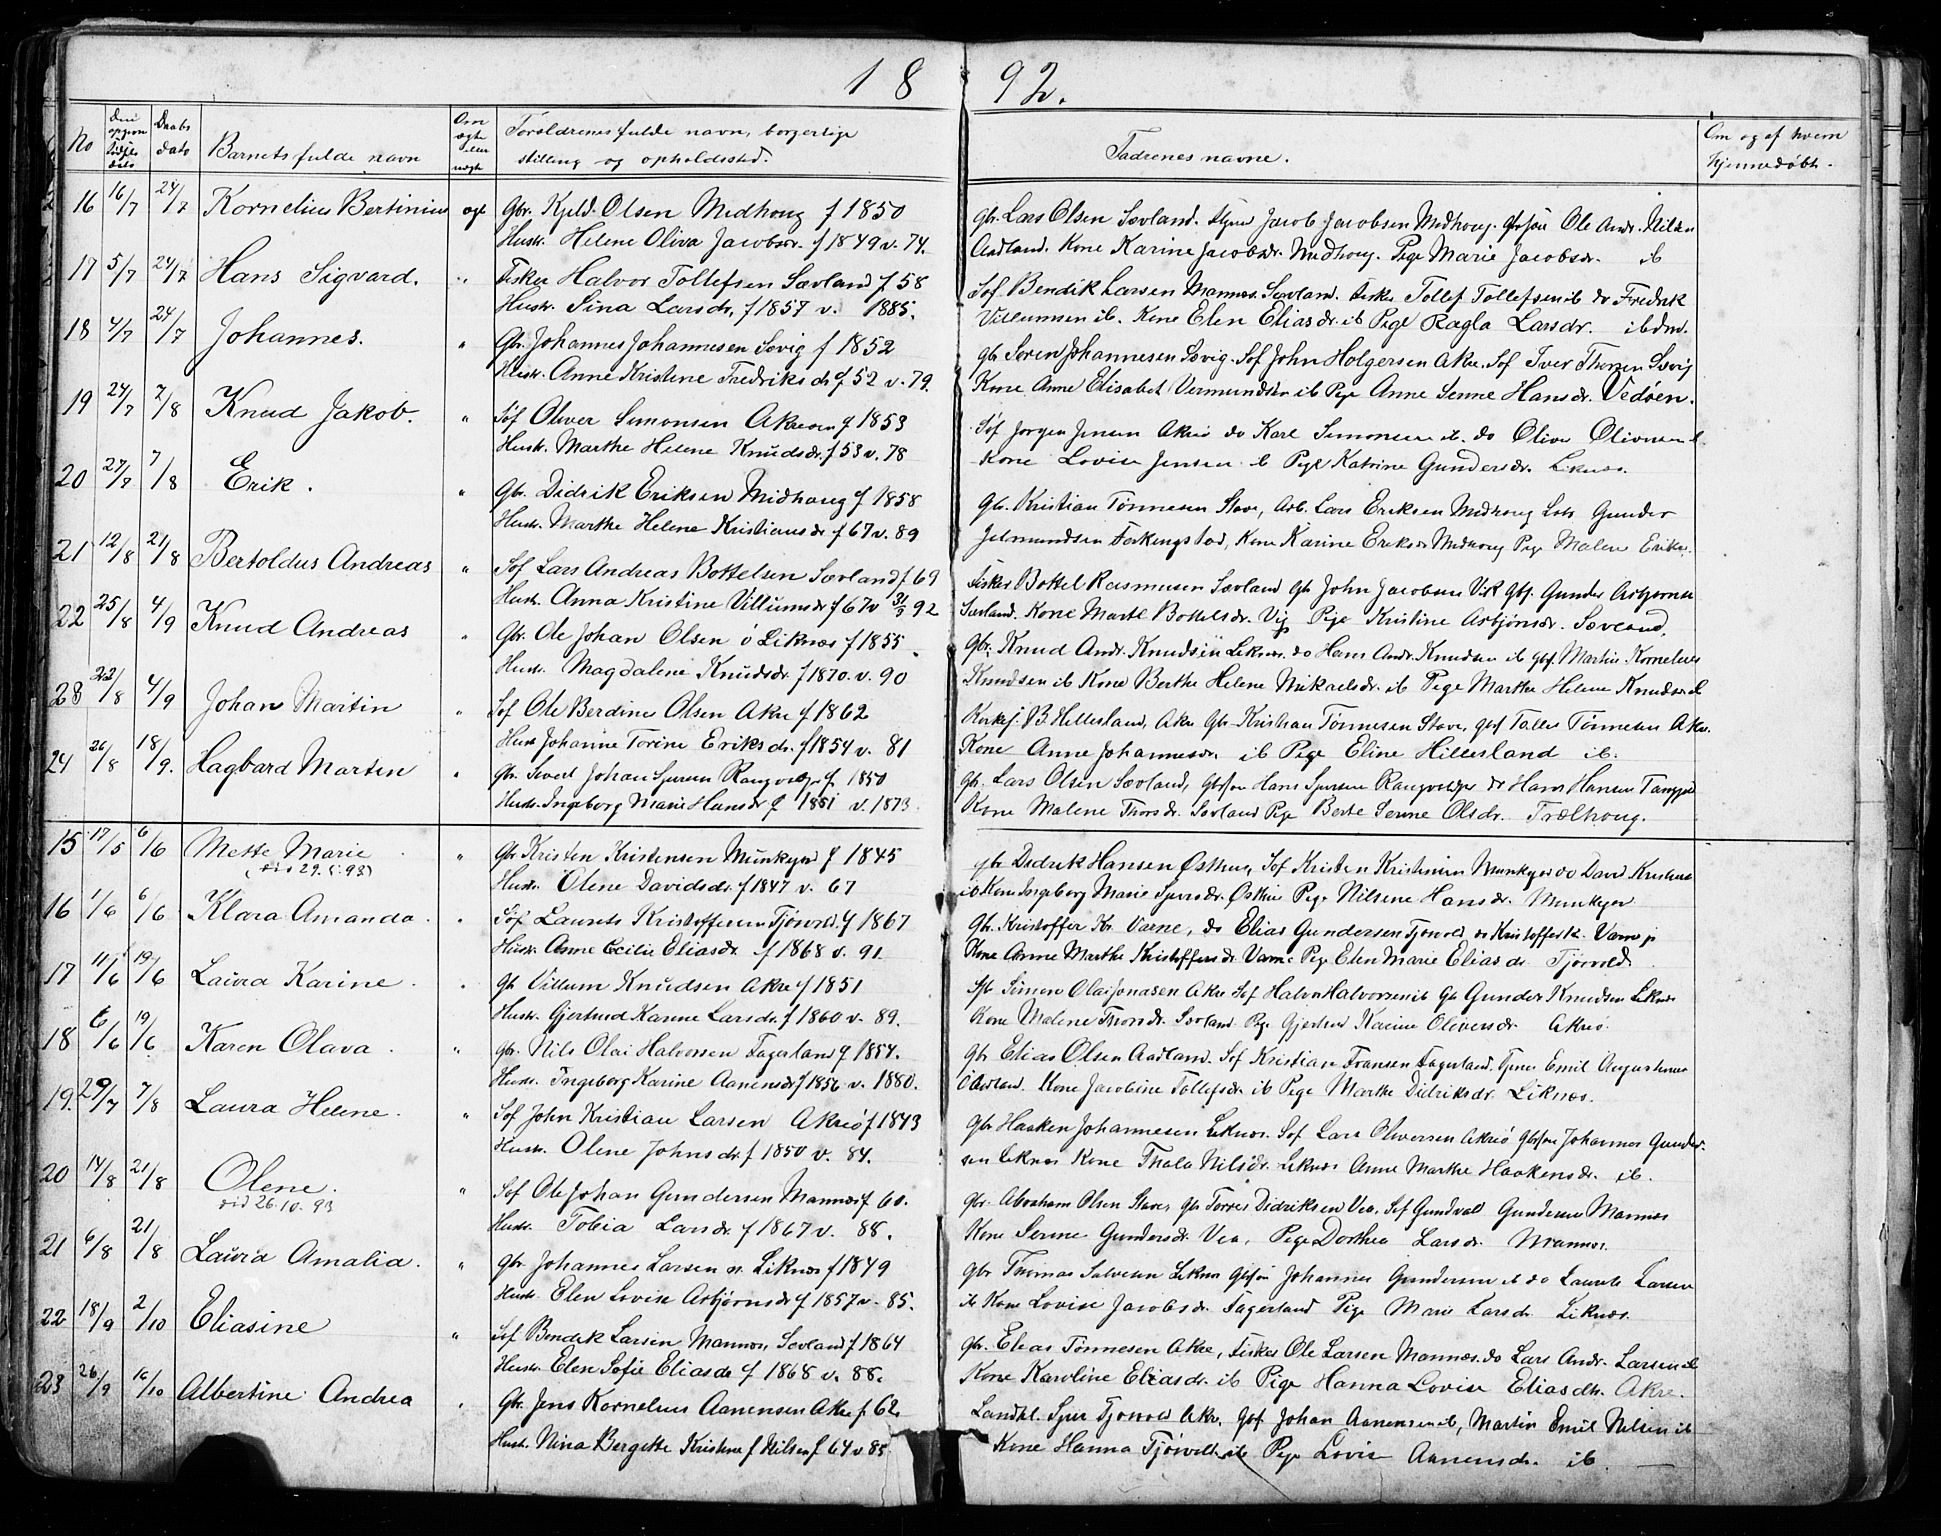 18 92.
No
Daabs dato
Barnets fulde navn
Forældrenes fulde navn, borgerlige
stilling og opholdssted.
Fadrenes navne.
Om og af hvem
hjemmedøbt.
16 16/7 24/7 Kornelius Bertinius ægt Gbr. Kjeld Olsen Midhoug f 1850
Hustr. Helene Oliva Jacobsdr. f 1849 v. 74.
Gbr. Lars Olsen Sævland. Jacob Jacobsen Midhoug. Ole Andr. Nilsen
Aadland. Kone Karine Jacobsdr. Midhoug. Pige Marie Jacobsdr. ib
17 5/7 24/7 Hans Sigvard. " Fisker Halvor Tollefsen Sævland f 58
Hustr. Sina Larsdr. f 1857 v. 1885.
Sof. Bendik Larsen Mannes. Sævland. Fisker Tollef Tollefsen ib do Fredrik
Villumsen ib. Kone Elen Eliasdr. ib Pige Ragla Larsdr. ibdm.
18 4/7 24/7 Johannes. " Gbr. Johannes Johannesen Sævig f 1852
Hustr. Anne Kristine Fredriksdr f 52 v. 79.
Gbr Søren Johannesen Sævig. Sof John Holgersen Akre. Sof Iver Thorsen Sævig
Kone Anne Elisabet Vermundsen ib Pige Anne Serine Hansdr. Vedøen.
19 24/7 7/8 Knud Jakob. " Sof Oliver Simonsen Akreøen f 1853
Hustr. Marthe Helene Knudsdr. f 53 v. 78
Sof Jørgen Jensen Akrø do Karl Simonsen ib. do Oliver
Kone Lovise Jensen ib Pige Katrine Gundersdr. Liknes.
20 27/7 7/8 Erik. " Gbr. Didrik Eriksen Midhaug f 1858
Hustr. Marthe Helene Kristiansdr f 67 v. 89
Gbr. Kristian Tønnesen Stave, Arb. Lars Eriksen Midhoug Gunder
Ferkingstad, Kone Karine Eriksdr Midhoug Pige Malene
21 12/8 21/8 Bertoldus Andreas " Sof Lars Andreas Bottelsen Sævland f 69
Hustr. Anna Kristine Villumsdr f 67 v 92
Fisker Bottel Rasmusen Sævland Gbr John Jacobsen Vik Gunder
Sævland. Kone Marte Bottelsdr. Vig Pige Kristine Asbjønsdr. Sævland.
22 25/8 4/9 Knud Andreas " Gbr. Ole Johan Olsen Liknes f 1855.
Hustr. Magdalene Knudsdr. f 1870. v. 90
Gbr. Knud Andr. Knudsen Liknes. do Hans Andr. Knudsen ib Martin Kornelius
Knudsen ib Kone Berthe Helene Mikaelsdr. ib Pige Marthe Helene Knudsdr ib
23 22/8 4/9 Johan Martin " Sof Ole Berdines Olsen Akre f 1862
Hustr Johanne Torine Eriksdr. f 1854 v. 81
Kirkes. B. Hillesland, Akre Gbr. Kristian Tønnesen Stave, Tønnesen Akre.
Kone Anne Johannesdr. ib Pige Eline Hillesland ib.
24 26/8 18/9. Hagbard Martin " Gbr. Sivert Johan f. 1850
Hustr. Ingeborg Marie Hansdr f 1851 v. 1873.
Gbr. Lars Olsen Sævland, Hans Hans Hansen
Kone Malene Thorsdr. Sævland Pige Berte Serine Olsdr. Trælhoug.
15 17/5 6/6 Mette Marie " Gbr Kristen Kristensen Munkejord f 1845
(død 29.5.93)
Hustr. Olene Davidsdr. f 1847 v. 67
Gbr Didrik Hansen Østhus, Sof Kristen Kristensen Munkejord do David
ib Kone Ingeborg Marie Østhus Pige Nilsine Hansdr. Munkejor
16 1/6 6/6 Klara Amanda. " Sof. Laurets Kristoffersen Tjøsvold. f 1867
Hustr. Anne Cecilie Eliasdr f 1868 v. 91.
Gbr. Kristoffer Kr. Varne, do Elias Gundersen Tjøsvold do Kristoffer K.
Kone Anne Marthe Kristoffersdr. Varne Pige Elen Marie Eliasdr Tjøsvold.
17 11/6 19/6 Laura Karine. " Gbr Villum Knudsen Akre f 1851
Hustr. Gjertrud Karine Larsdr. f 1860 v. 89.
Simon Olai Jonasen Akre Sof Halvor Halvorsen ib Gbr Gunder Knudsen Liknes
Kone Malene Thorsdr. Sævland Pige Gjertrud Karine Oliversdr Akrø.
18 6/6 19/6 Karen Olava. " Gbr. Nils Olai Halvorsen Fagerland f 1854.
Hustr. Ingeborg Karine Aanensdr. f 1856 v. 1880.
Gbr Elias Olsen Aadland. Sof Kristian Fransen Fagerland. Tjener Emil
Aadland. Kone Jacobine Tollefsdr. ib Pige Marthe Didriksdr. Liknes.
19. 29/7 7/8 Laura Helene. " Sof John Kristian Larsen Akreø f 1843
Hustr. Olene Johnsdr. f 1850 v. 84.
Gbr Haaken Johannesen Liknes. Sof Lars Oliversen Akrø Johannes Gunder-
sen Liknes Kone Thala Nilsdr. Liknes Anne Marthe Haakensdr. ib.
20 14/8 21/8 Olene. " Sof Ole Johan Gundersen Mannes f 60.
død 26.10.93
Hustr. Tobia Larsdr. f 1867 v. 88.
Gbr. Abraham Olsen Stave, Gbr Torres Didriksen Vea, Sof Gundvald Gundersen Mannes
Kone Serine Gundersdr. Vea, Pige Dorthea Larsdr. Mannes.
21 6/8 21/8 Laura Amalia. " Gbr Johannes Larsen Liknes f 1849
Hustr. Elen Lovise Asbjørnsdr f 1857 v. 85.
Gbr Thomas Salvesen Liknes Johannes Gundersen ib do Laurets Larsen
ib Kone Lovise Jacobsdr. Fagerland Pige Marie Larsdr. Liknes.
22 18/9 2/10 Eliasine " Sof Bendik Larsen Mannes, Sævland f 1864
Hustr. Elen Sofie Eliasdr f 1868 v. 88.
Gbr. Elias Tønnesen Akre, Fisker Ole Larsen Mannes. do Lars Andr. Larsen ib
Kone Karoline Eliasdr. ib Pige Hanna Lovise Eliasdtr. Akre.
23 26/9 16/10 Albertine Andrea " Gbr. Jens Kornelius Aanensen Akre f. 62.
Hustr. Nina Bergitte Kristine Nilsen f 64 v 85
Landhl. Tjøsvold Akre, Johan Aanensen ib, Martin Emil Nilsen ib
Kone Hanna Tjøsvold ib Pige Lovise Aanensdr. ib.